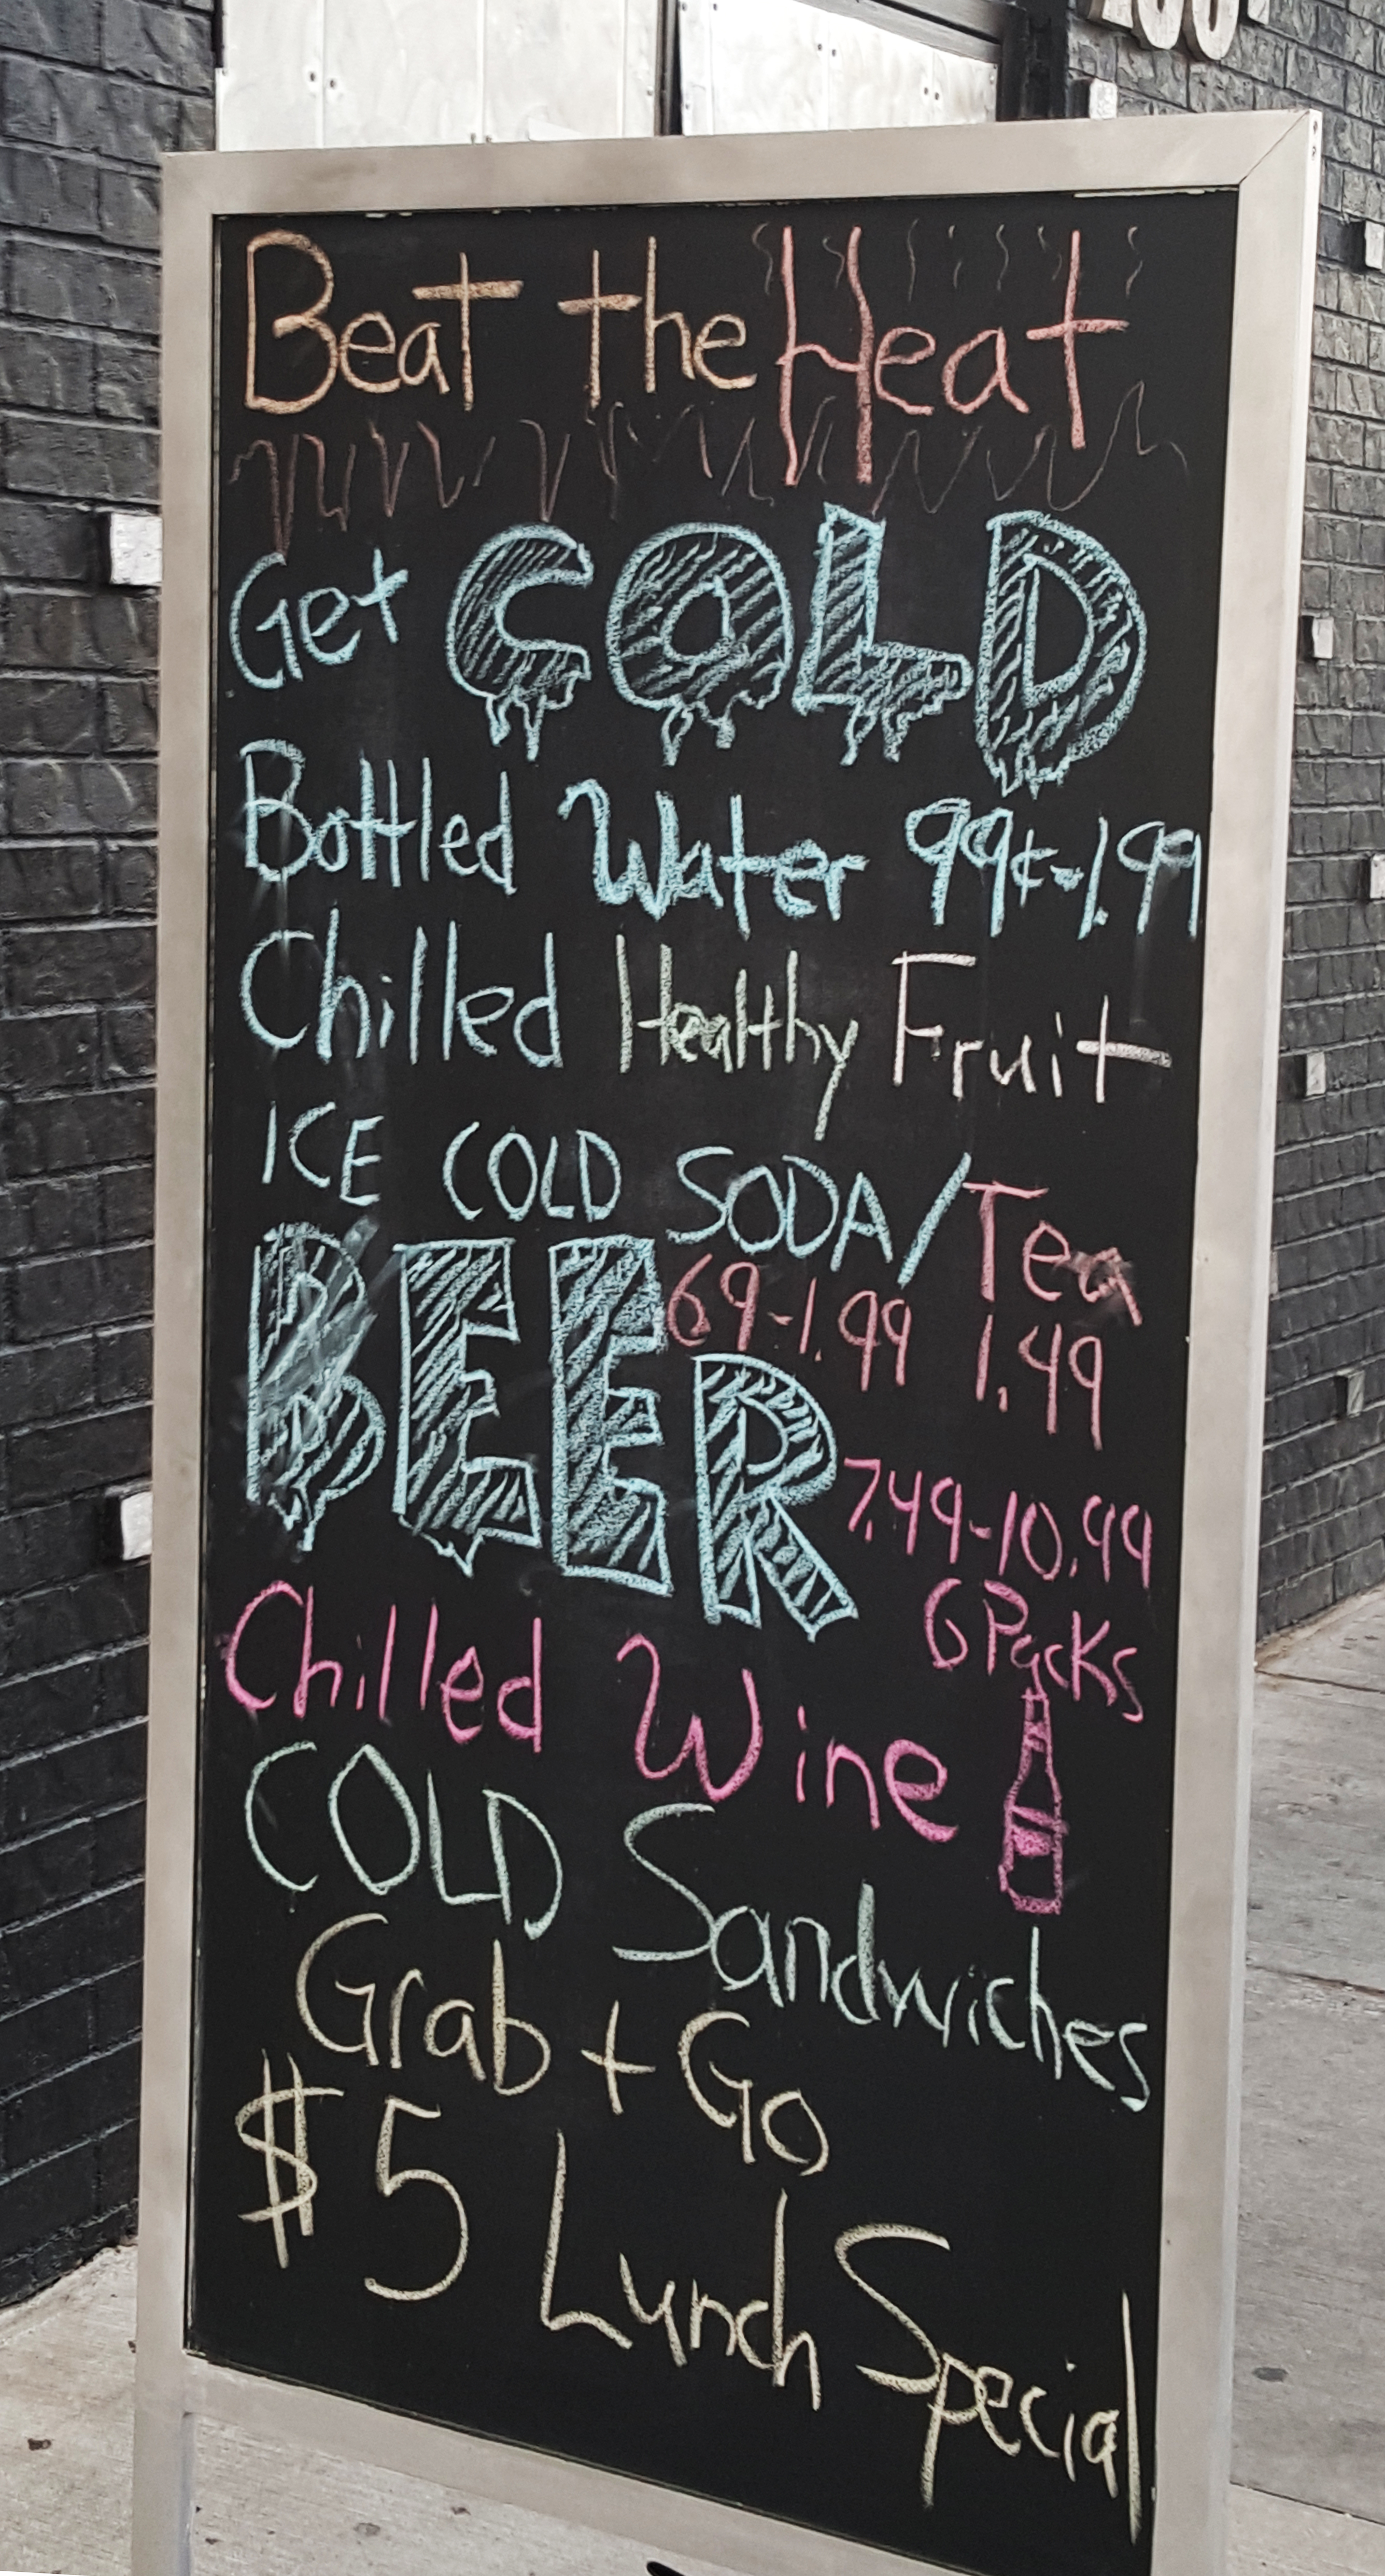 Beat the Heat
Get COLD
Bottled Water 99¢-1.99
Chilled Healthy Fruit
ICE COLD SODA/Tea
69-1.99 1.49
BEER 7.49-10.99
6 Packs
Chilled Wine
COLD Sandwiches
Grab + Go
$5 Lunch Special